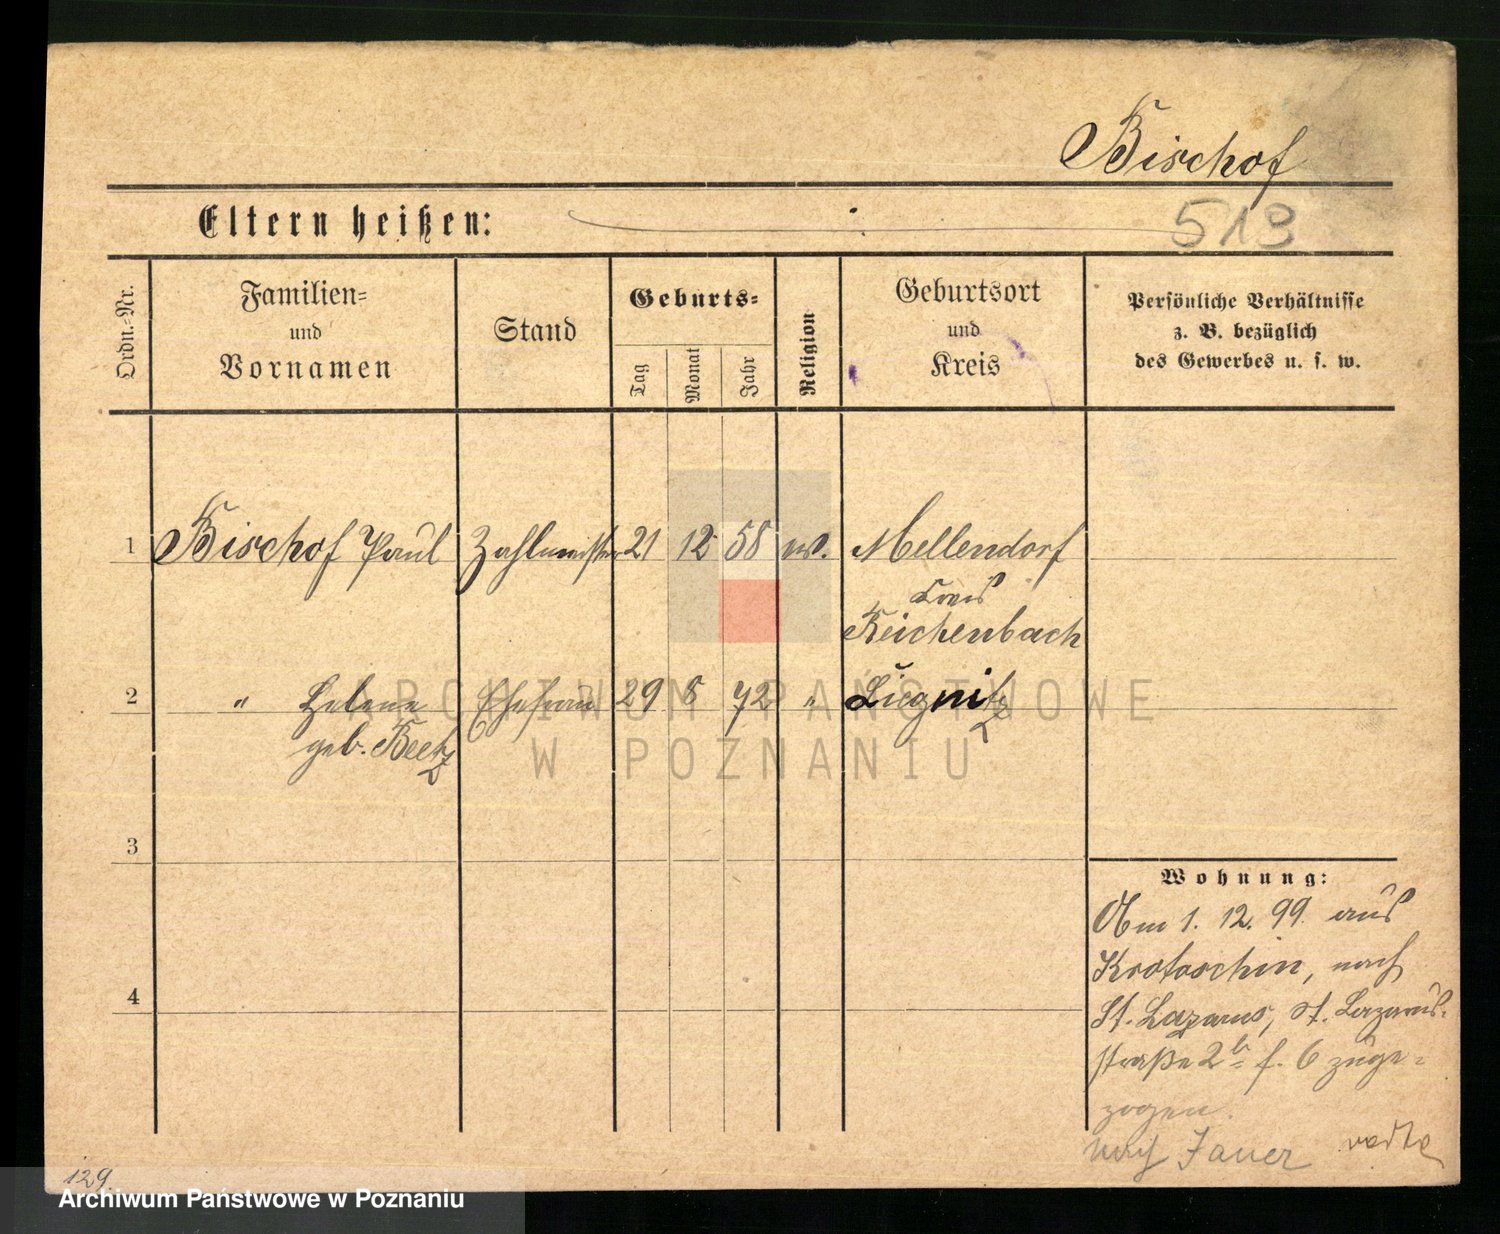 Bischof
Eltern heißen:
513
Ordn.-Nr.
Familien-
und
Vornamen
Stand
Geburts-
Tag
Monat
Jahr
Religion
Geburtsort
und
Kreis
Persönliche Verhältnisse
z. B. bezüglich
des Gewerbes u. s. w.
1 Bischof Paul Zahlmeister 21 12 58 ev. Mellendorf
Kreis
Reichenbach
2 " Helene Ehefrau 29 8 72 " Liegnitz
geb. Beetz
ARCHIWUM PAŃSTWOWE
W POZNANIU
3
4
Wohnung:
Am 1. 12. 99. aus
Krotoschin, nach
St. Lazarus, St. Lazarus-
straße 2b f. 6 zuge-
zogen.
nach Jauer
129
Archiwum Państwowe w Poznaniu